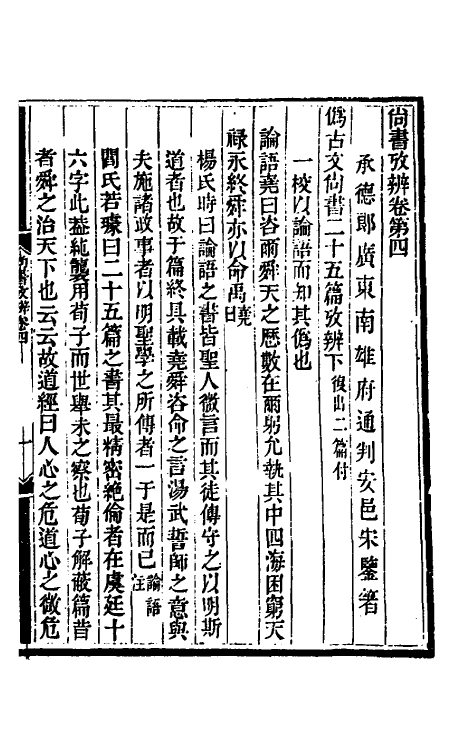 尙書攷辨卷第四
承德郎廣東南雄府通判安邑宋鑒著
僞古文尙書二十五篇攷辨下後出二篇付
一校以論語而知其僞也
論語堯曰咨爾舜天之厯數在爾躬允執其中四海困窮天
祿永終舜亦以命禹堯曰
楊氏時曰論語之書皆聖人微言而其徒傳守之以明斯
道者也故于篇終具載堯舜咨命之言湯武誓師之意與
夫施諸政事者以明聖學之所傳者一于是而已論語注
閻氏若璩曰二十五篇之書其最精密絶倫者在虞廷十
六字此葢純襲用荀子而世舉未之察也荀子解蔽篇昔
者舜之治天下也云云故道經曰人心之危道心之微危
尙書攷辨卷四
一